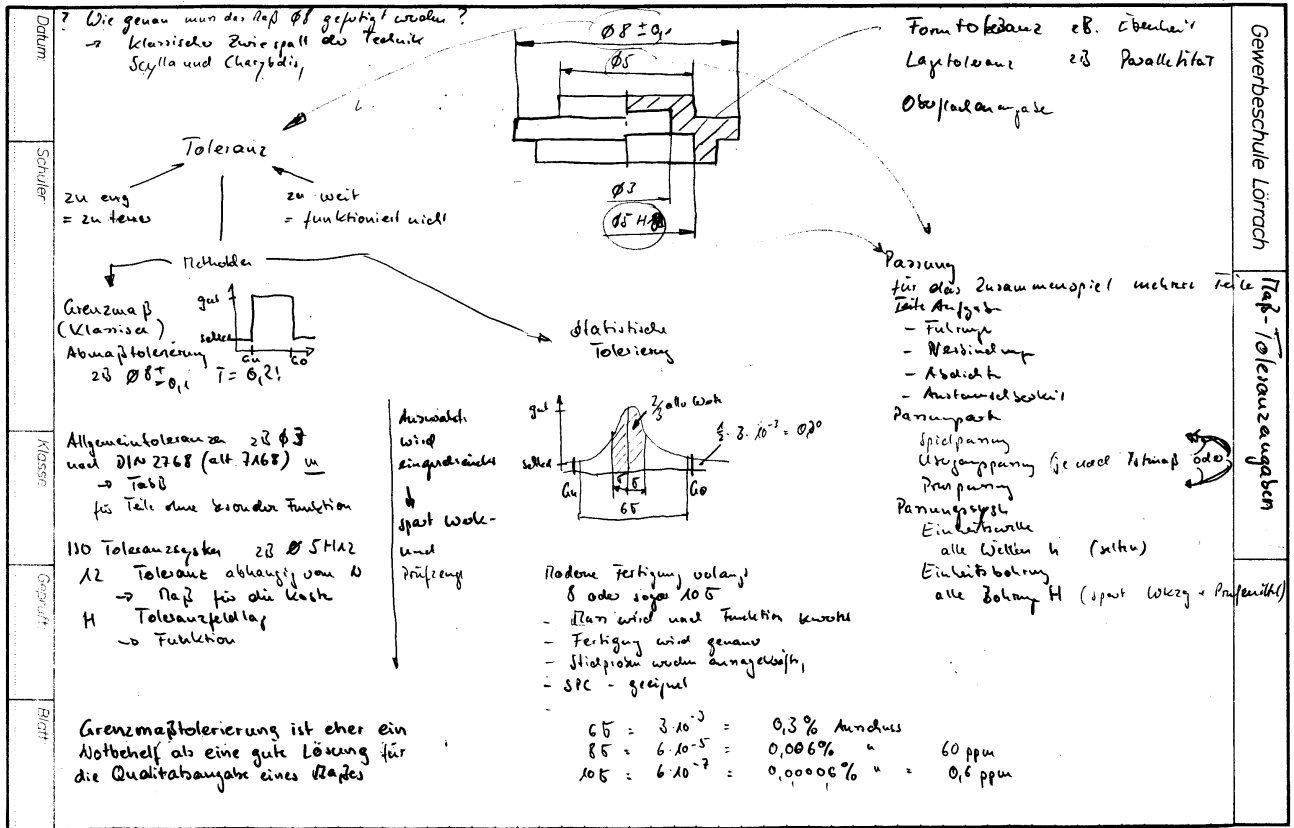 ? Wie genau muss das Maß Ø8 gefertigt werden ?
→ klassischer Zwiespalt der Technik
Scylla und Charybdis,
Toleranz
zu eng
= zu teuer
zu weit
= funktioniert nicht
Methoden
Grenzmaß
(Klassisch)
Abmaßtolerierung
zB Ø8 ± 0,1 T = 0,2!
gut
selten
Gu Go
Allgemeintoleranzen zB Ø3
nach DIN 2768 (alt 7168) m
→ TabB
für Teile ohne besondere Funktion
ISO Toleranzsystem zB Ø 5H12
12 Toleranz abhängig vom N
→ Maß für die Kosten
H Toleranzfeldlage
→ Funktion
Auswahl
wird
eingeschränkt
spart Werk-
und
Prüfzeug
Grenzmaßtolerierung ist eher ein
Notbehelf als eine gute Lösung für
die Qualitätsangabe eines Maßes
Ø8 ± 0,1
Ø5
Ø3
Ø5 H
Statistische
Tolerierung
gut
selten
2/3 aller Werte
1/2 · 3 · 10⁻³ =
Gu Go
σ σ
6σ
Moderne Fertigung verlangt
8 oder sogar 10σ
- Mass wird nach Funktion bewertet
- Fertigung wird genauer
- Stichproben werden aussagekräftig,
- SPC - geeignet
-
6σ = 3·10⁻³ = 0,3% Ausschuss
8σ = 6·10⁻⁵ = 0,006% " 60 ppm
10σ = 6·10⁻⁷ = 0,00006% " = 0,6 ppm
Formtoleranz zB. Ebenheit
Lagetoleranz zB Parallelität
Oberflächenangabe
Passung
für das Zusammenspiel mehrerer Teile
Teile Aufgabe
- Führung
- Verbindung
- Abdichten
- Austauschbarkeit
Passungsart
Spielpassung
Übergangspassung (je nach Istmaß oder
Presspassung
Passungssystem
Einheitswelle
alle Wellen h (selten)
Einheitsbohrung
alle Bohrung H (spart Wkzg + Prüfmittel)
Gewerbeschule Lörrach
Maß-Toleranzangaben
Datum:
Schüler
Klasse:
Geprüft:
Blatt